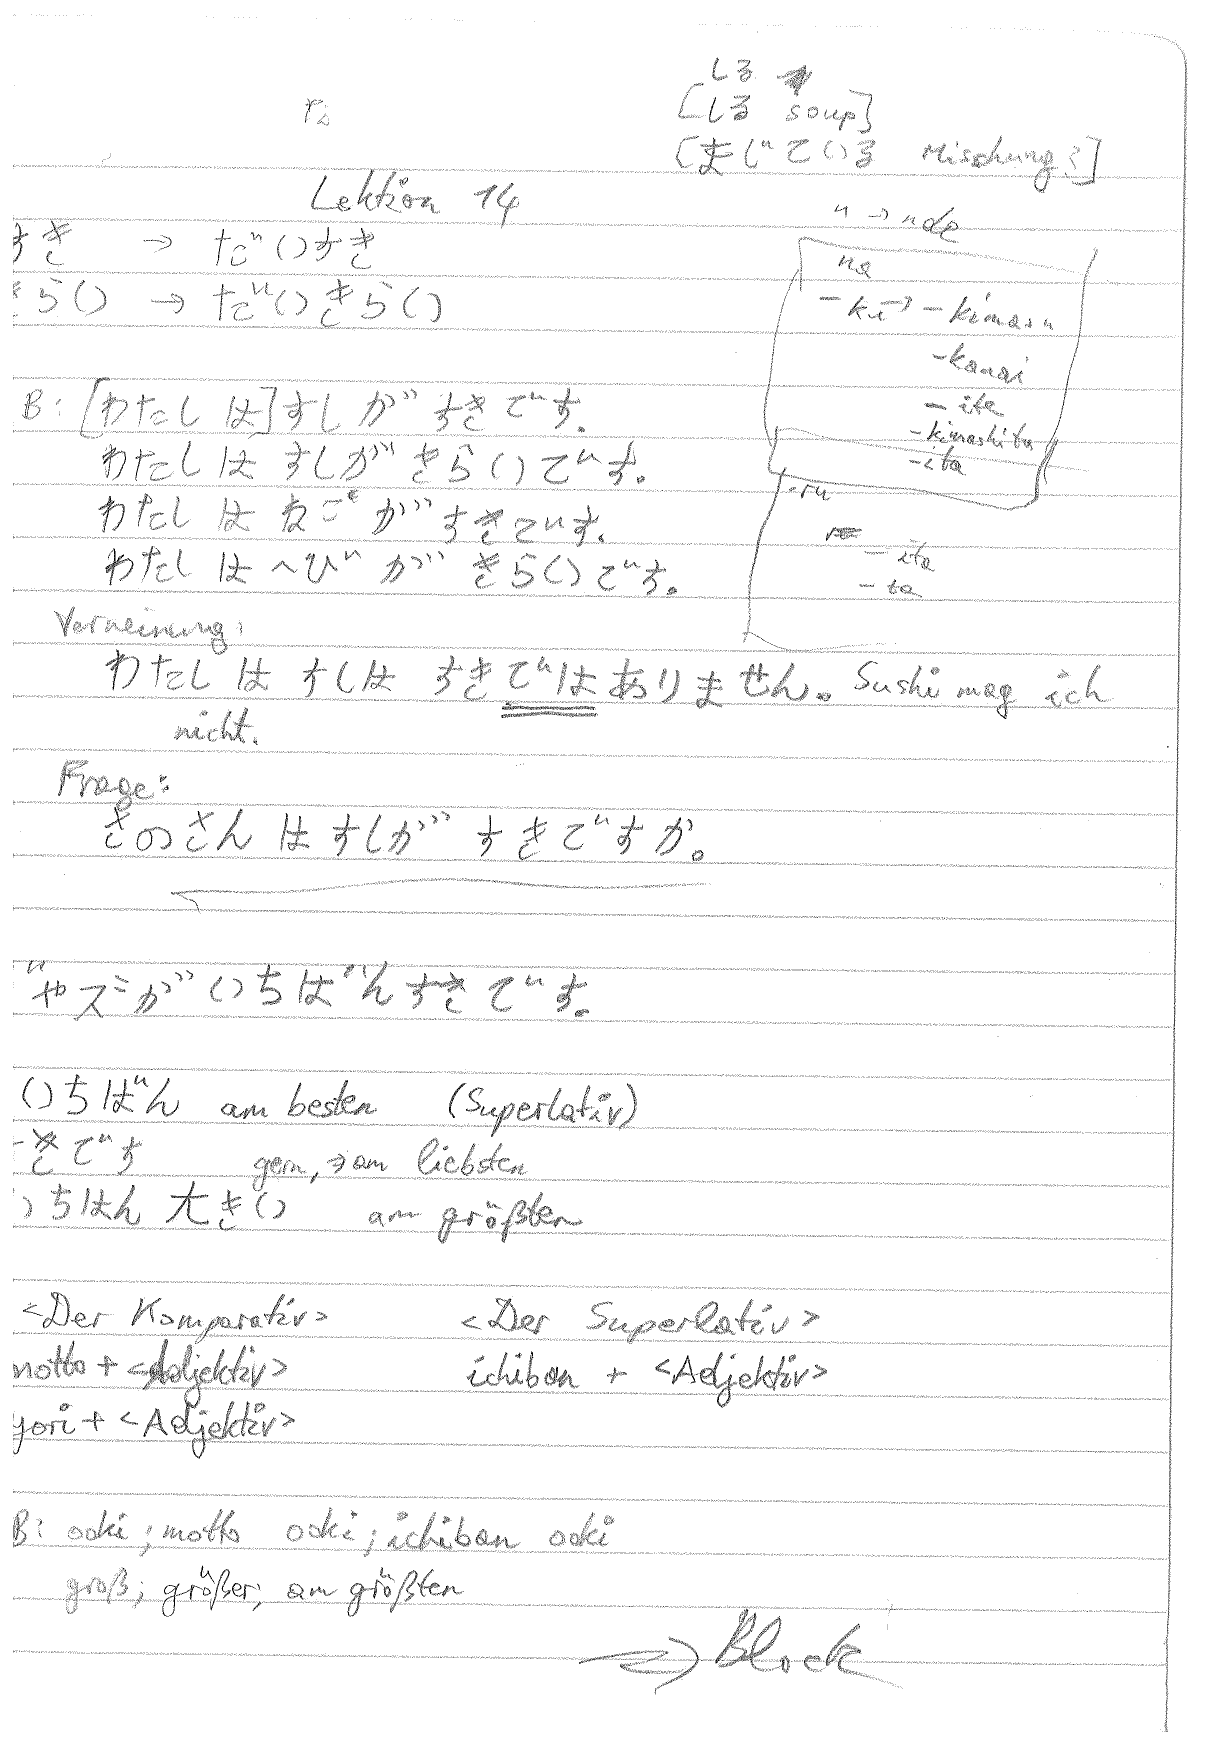 しる
[しる soup]
[まじている Mischung?]
Lektion 14
すき → だいすき
きらい → だいきらい
u → nde
na
-ku → -kimasu
-kanai
-ite
-kimashita
-ita
-ru
-ita
-ta
B: [わたしは]すしがすきです。
わたしはすしがきらいです。
わたしはねこがすきです。
わたしはへびがきらいです。
Verneinung:
わたしはすしはすきではありません。Sushi mag ich
nicht.
Frage:
きのさんはすしがすきですか。
゛ャズがいちばんすきです。
いちばん am besten (Superlativ)
きです gern, → am liebsten
いちばん 大きい am größten
<Der Komparativ> <Der Superlativ>
motto + <Adjektiv> ichiban + <Adjektiv>
yori + <Adjektiv>
B: ooki; motto ooki; ichiban ooki
groß; größer; am größten
→ Block